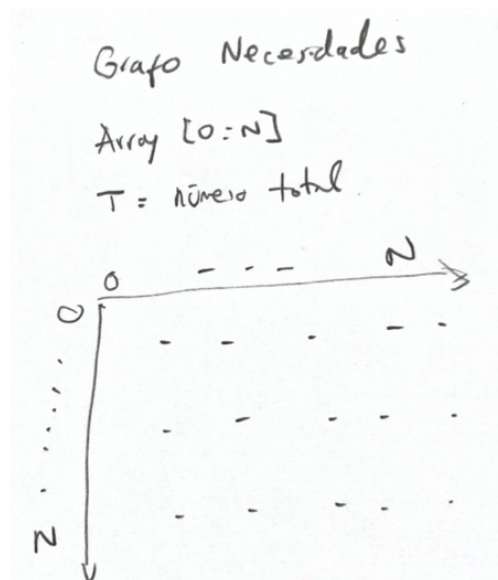 Grafo Necesidades
Array [0:N]
T = número total
0 - - - N
0
N